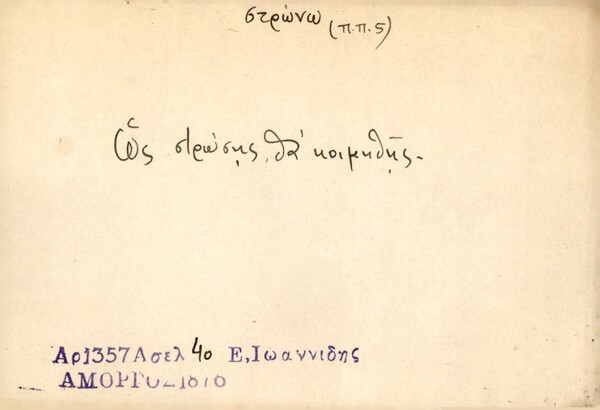 στρώνω (π.π.5)
Ὣς στρώσῃς, θὰ κοιμηθῇς.
Αρ1357Ασελ 40 Ε,Ιωαννιδης
ΑΜΟΡΓΟΣ1876